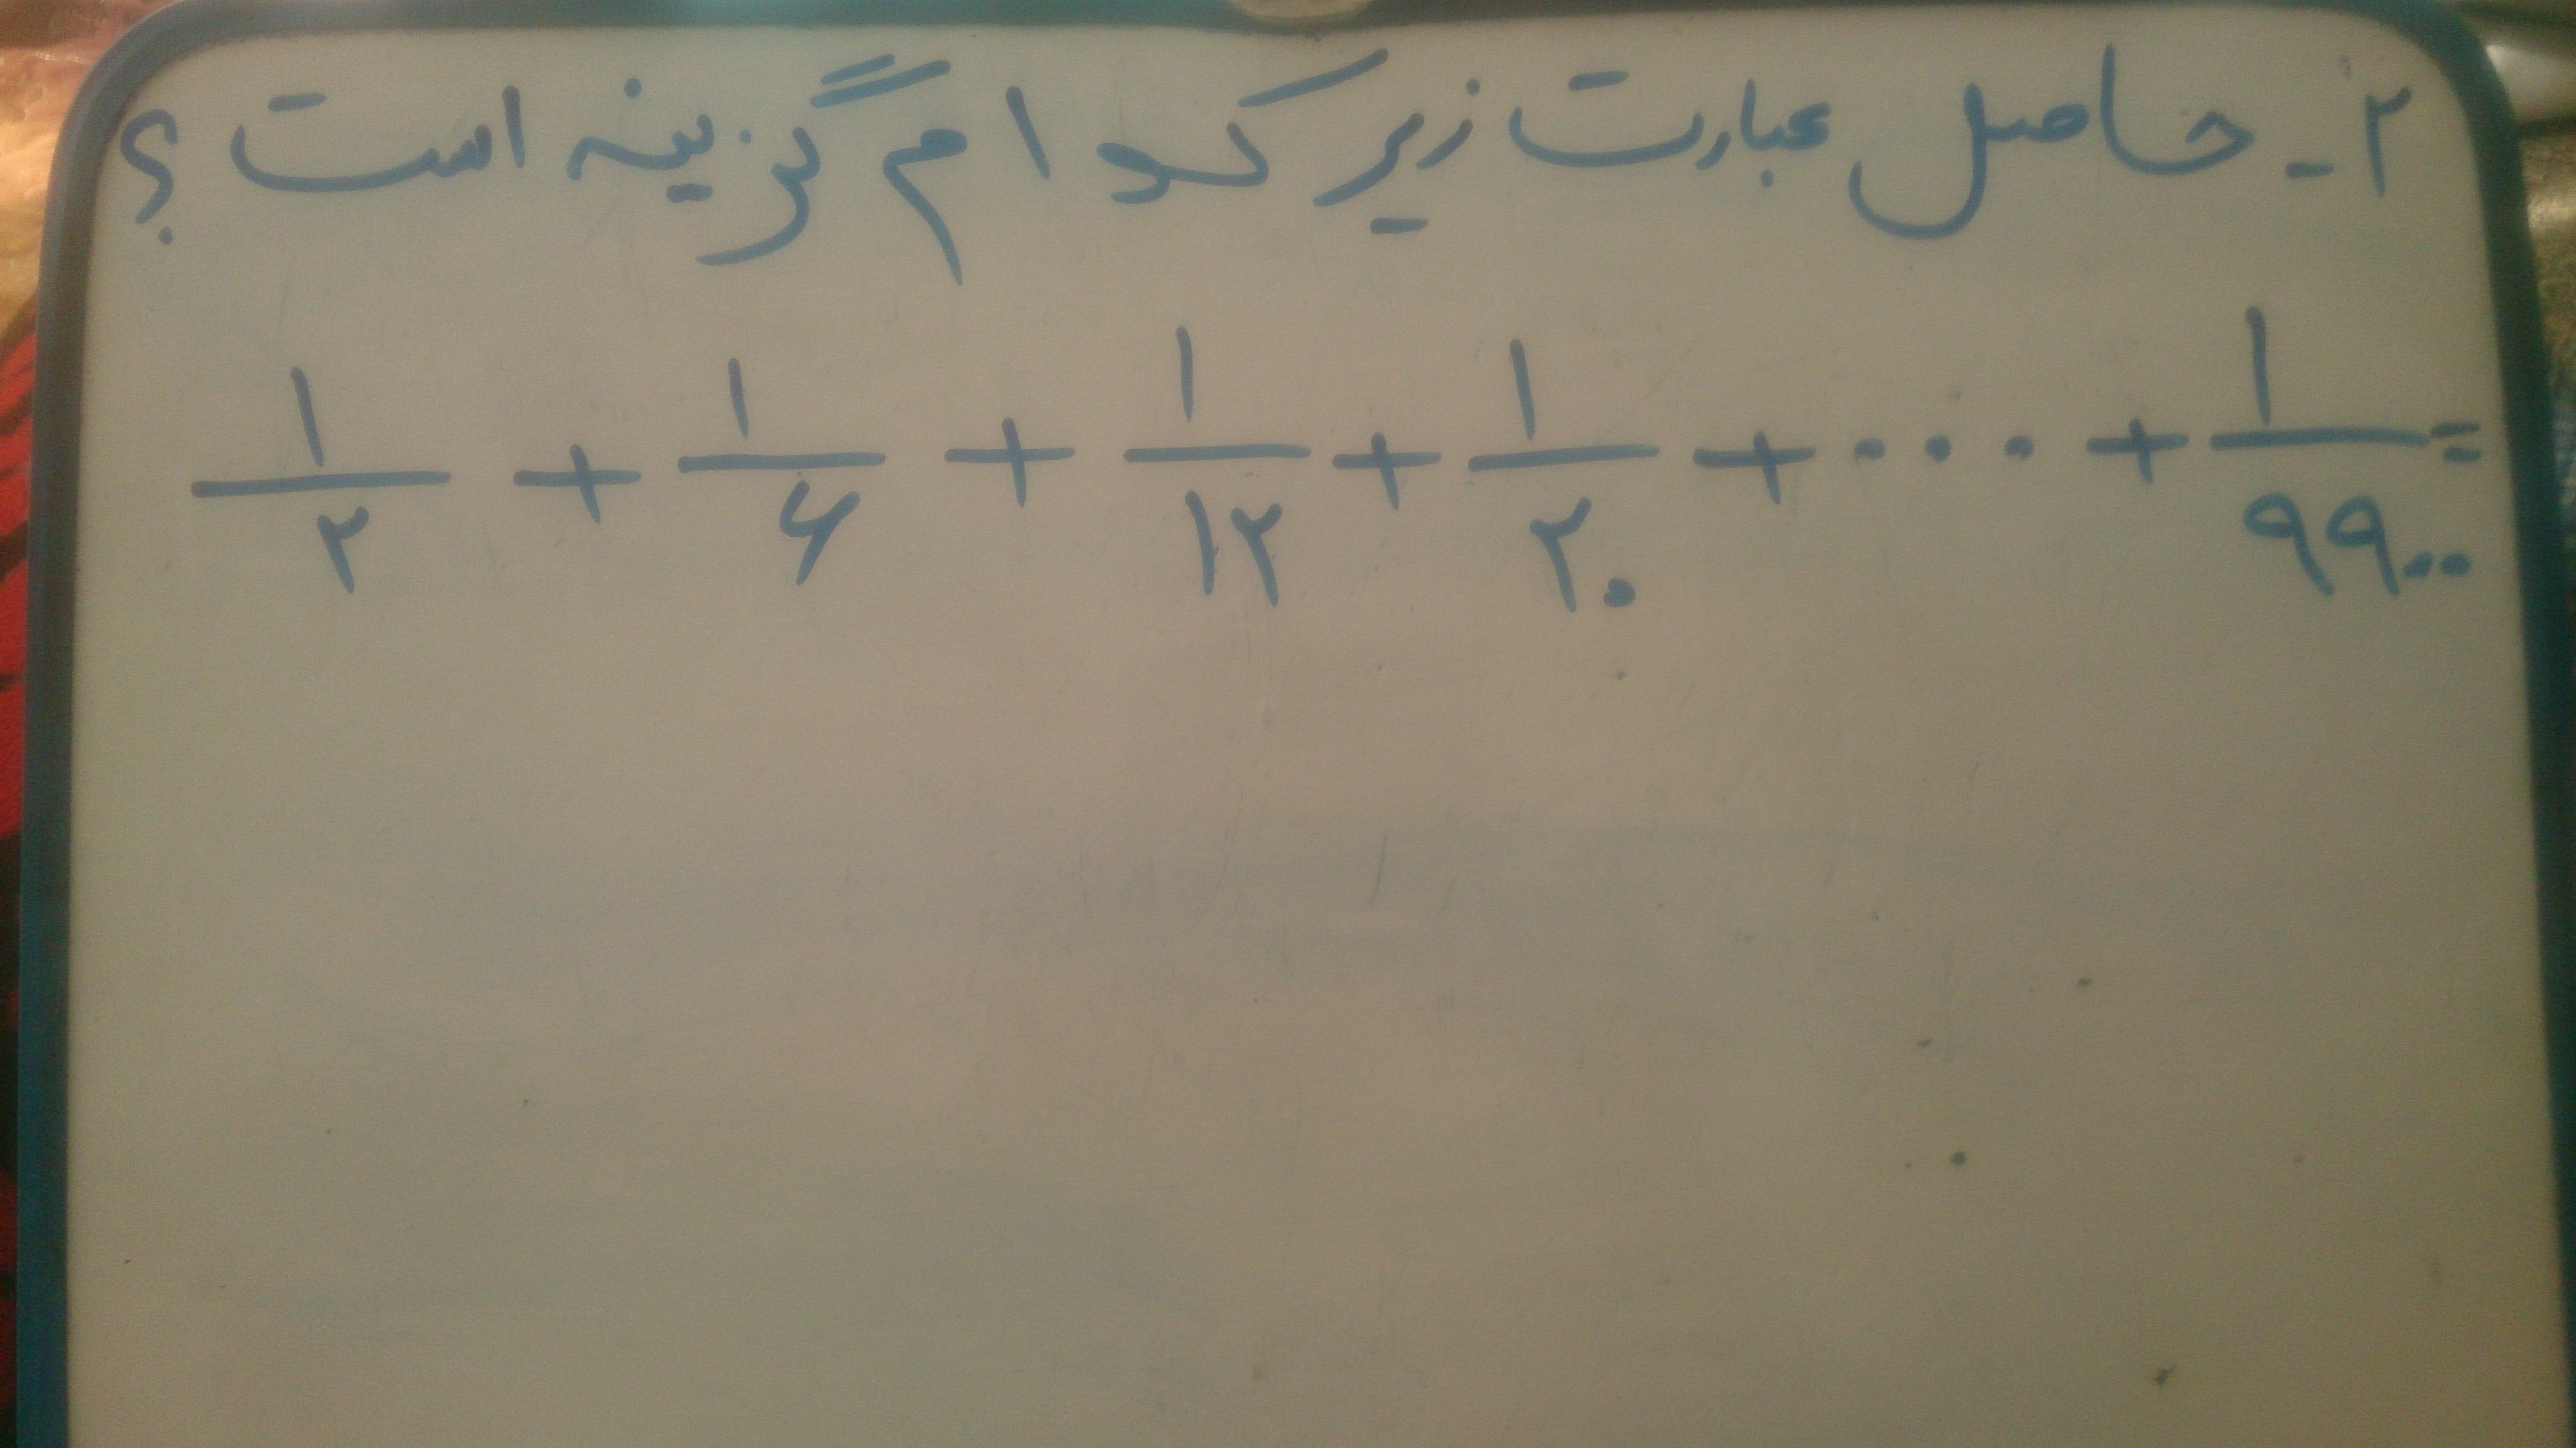 ۲- حاصل عبارت زیر کدام گزینه است؟
۱/۲ + ۱/۶ + ۱/۱۲ + ۱/۲۰ + ... + ۱/۹۹۰۰ =